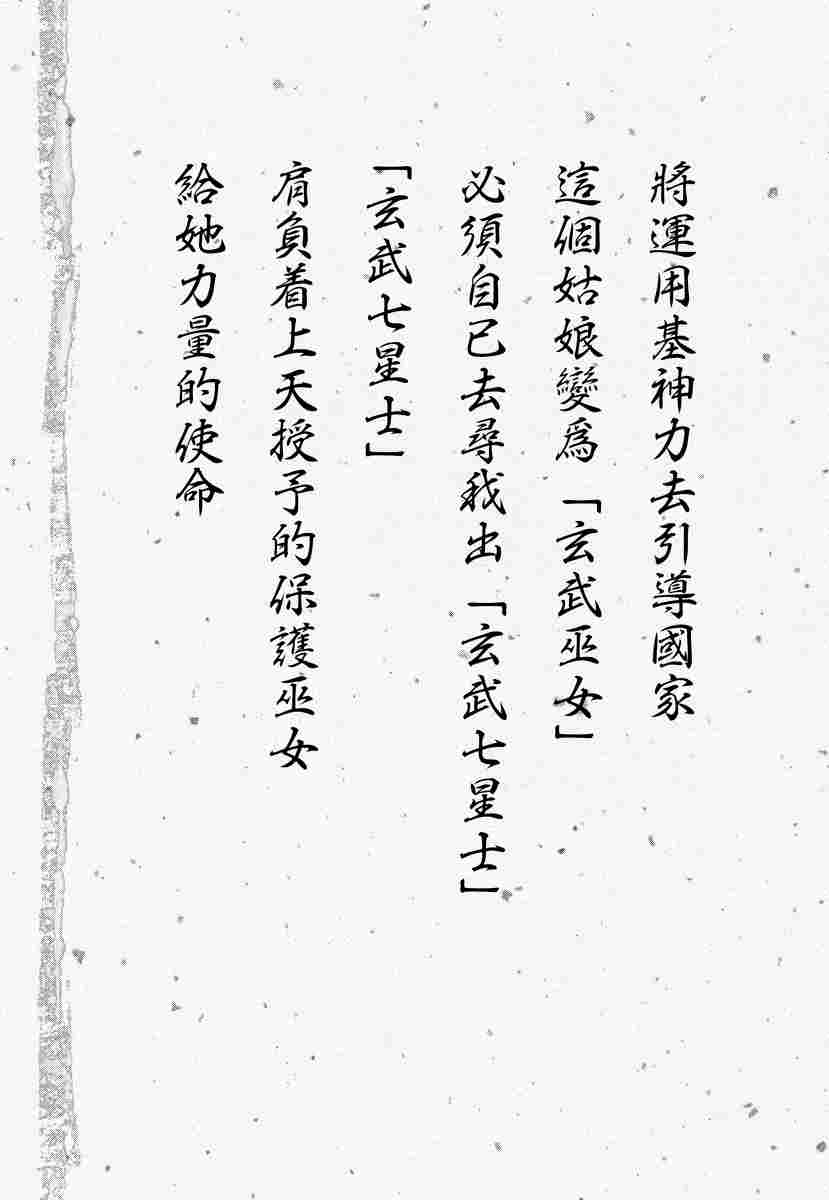 將運用基神力去引導國家
這個姑娘變爲「玄武巫女」
必須自已去尋我出「玄武七星士」
「玄武七星士」
肩負着上天授予的保護巫女
給她力量的使命